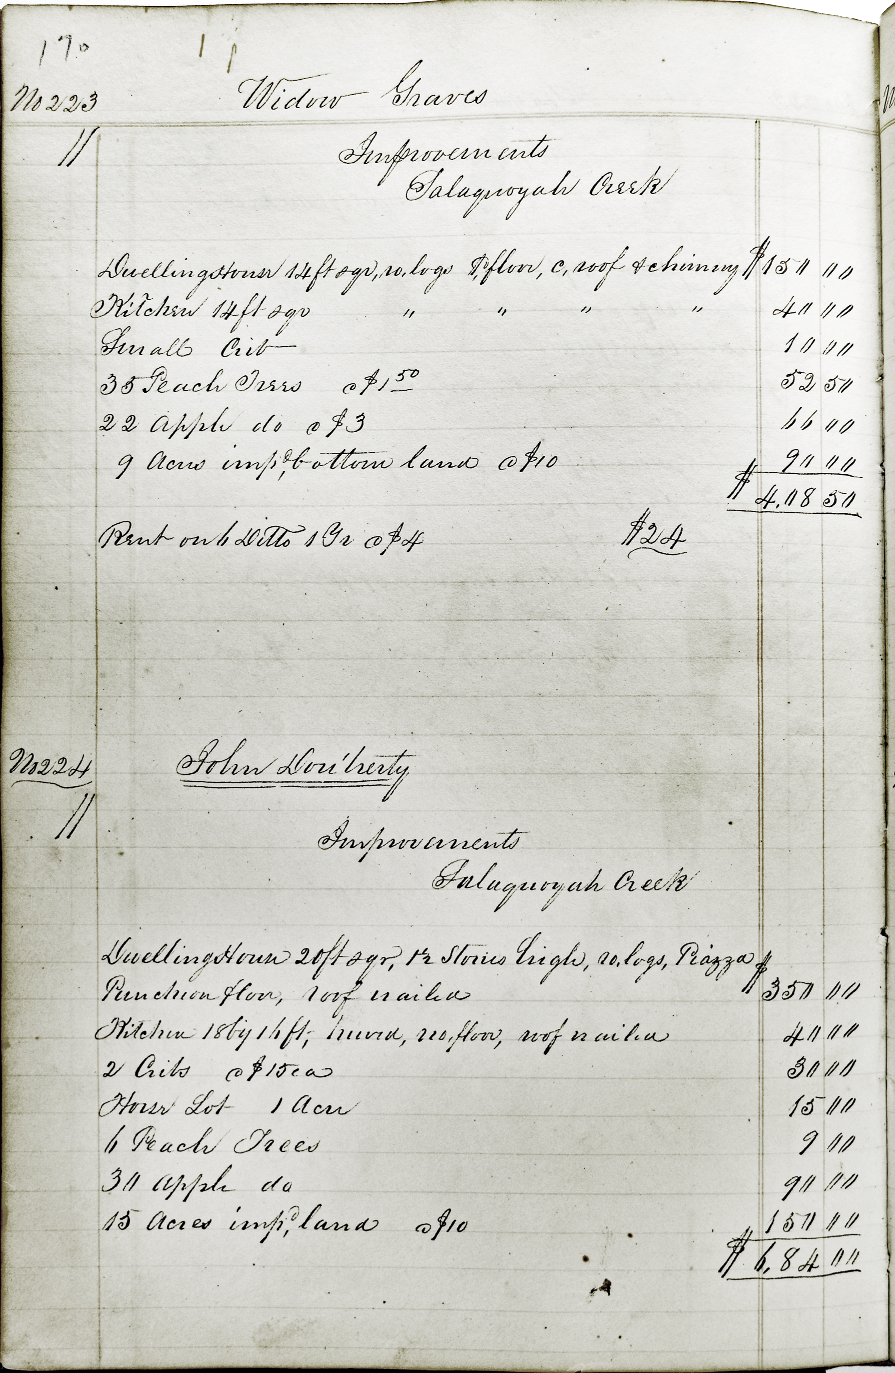 170
No 223 Widow Graves
Improvements
Talaquoyah Creek
Dwelling House 14 ft sqr, ro. logs P. floor, c. roof & chimney $150 00
Kitchen 14 ft sqr " " " " 40 00
Small Crib 10 00
35 Peach Trees @ $1 50 52 50
22 Apple do @ $3 66 00
9 Acres imp.d bottom land @ $10 90 00
$4,08 50
Rent on 6 Ditto 1 Yr @ $4 $24
No 224 John Dou'herty
Improvements
Talaquoyah Creek
Dwelling House 20 ft sqr, 1½ Stories high, ro. logs, Piazza
Puncheon floor, roof nailed $350 00
Kitchen 18 by 16 ft, hewed, no. floor, roof nailed 40 00
2 Cribs @ $15 ea 30 00
Horse Lot 1 Acre 15 00
6 Peach Trees 9 00
30 Apple do 90 00
15 Acres imp.d land @ $10 150 00
$6,84 00